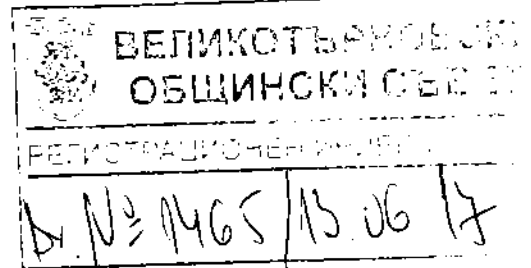 ВЕЛИКОТЪРНОВСКИ
ОБЩИНСКИ СЪВЕТ
РЕГИСТРАЦИОНЕН ИНДЕКС
№ 1465 13.06 17